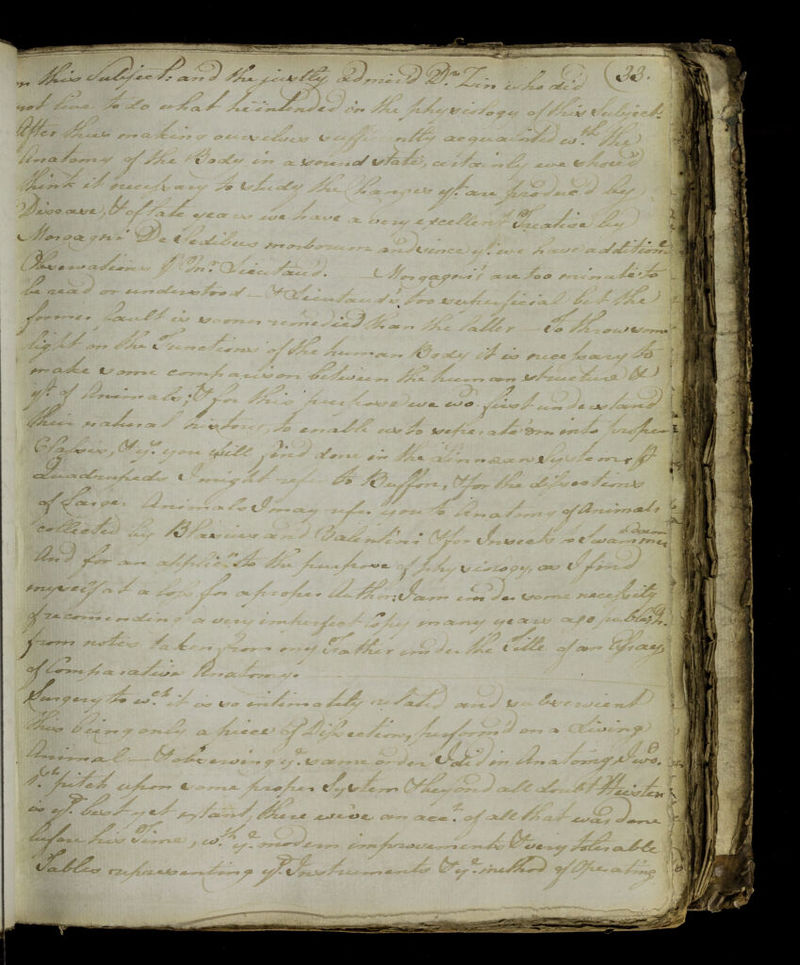 33.
on this Subject: and the justly admir'd Dr. Zin who did
not live to do what he intended on the physiology of this Subject.
After thus making ourselves sufficiently acquainted wth. the
Anatomy of the Body in a sound state, certainly we shou'd
think it necessary to study the Changes yt. are produced by
Disease, & of late years we have a very excellent Treatise by
Morgagni De Sedibus morborum and since yt. we have addition
Observations of Mr. Lieutaud. — Morgagni's are too minute to
be read or understood — & Lieutaud's too superficial but the
former fault is sooner remedied than the latter — To throw som
light on the Functions of the human Body it is necessary to
make some comparison between the human structure &
yt. of Animals; & for this purpose we wd. first understand
their natural history, to enable us to seperate em into proper
Classes, & ys. you will find done in the Linnæan System; of
Quadrupeds I might refer to Buffon, & for the dissections
of Large Animals I may refer you to Anatomy of Animals
collected by Blasius and Valentini & for Insects to Swammer
dam
And for an applicn. to the purpose of physiology, as I find
myself at a loss for a proper Author; I am under some necessity
of recomending a very imperfect Copy many years ago publish'd
from notes taken from my Father under the Title of an Essay
of Comparative Anatomy.
Surgery to wch. it is so intimately related and subservient
this being only a piece of Dissection, perform'd on a Living
Animal — & observing ye. same order I did in Anatomy I wd.
1st. pitch upon some proper System & beyond all doubt Heister
is ye. best yet extant, there we've an acct. of all that was done
before his Time, wth. ye. modern improvements & very tolerable
Tables representing ye. Instruments & ye. method of Operating